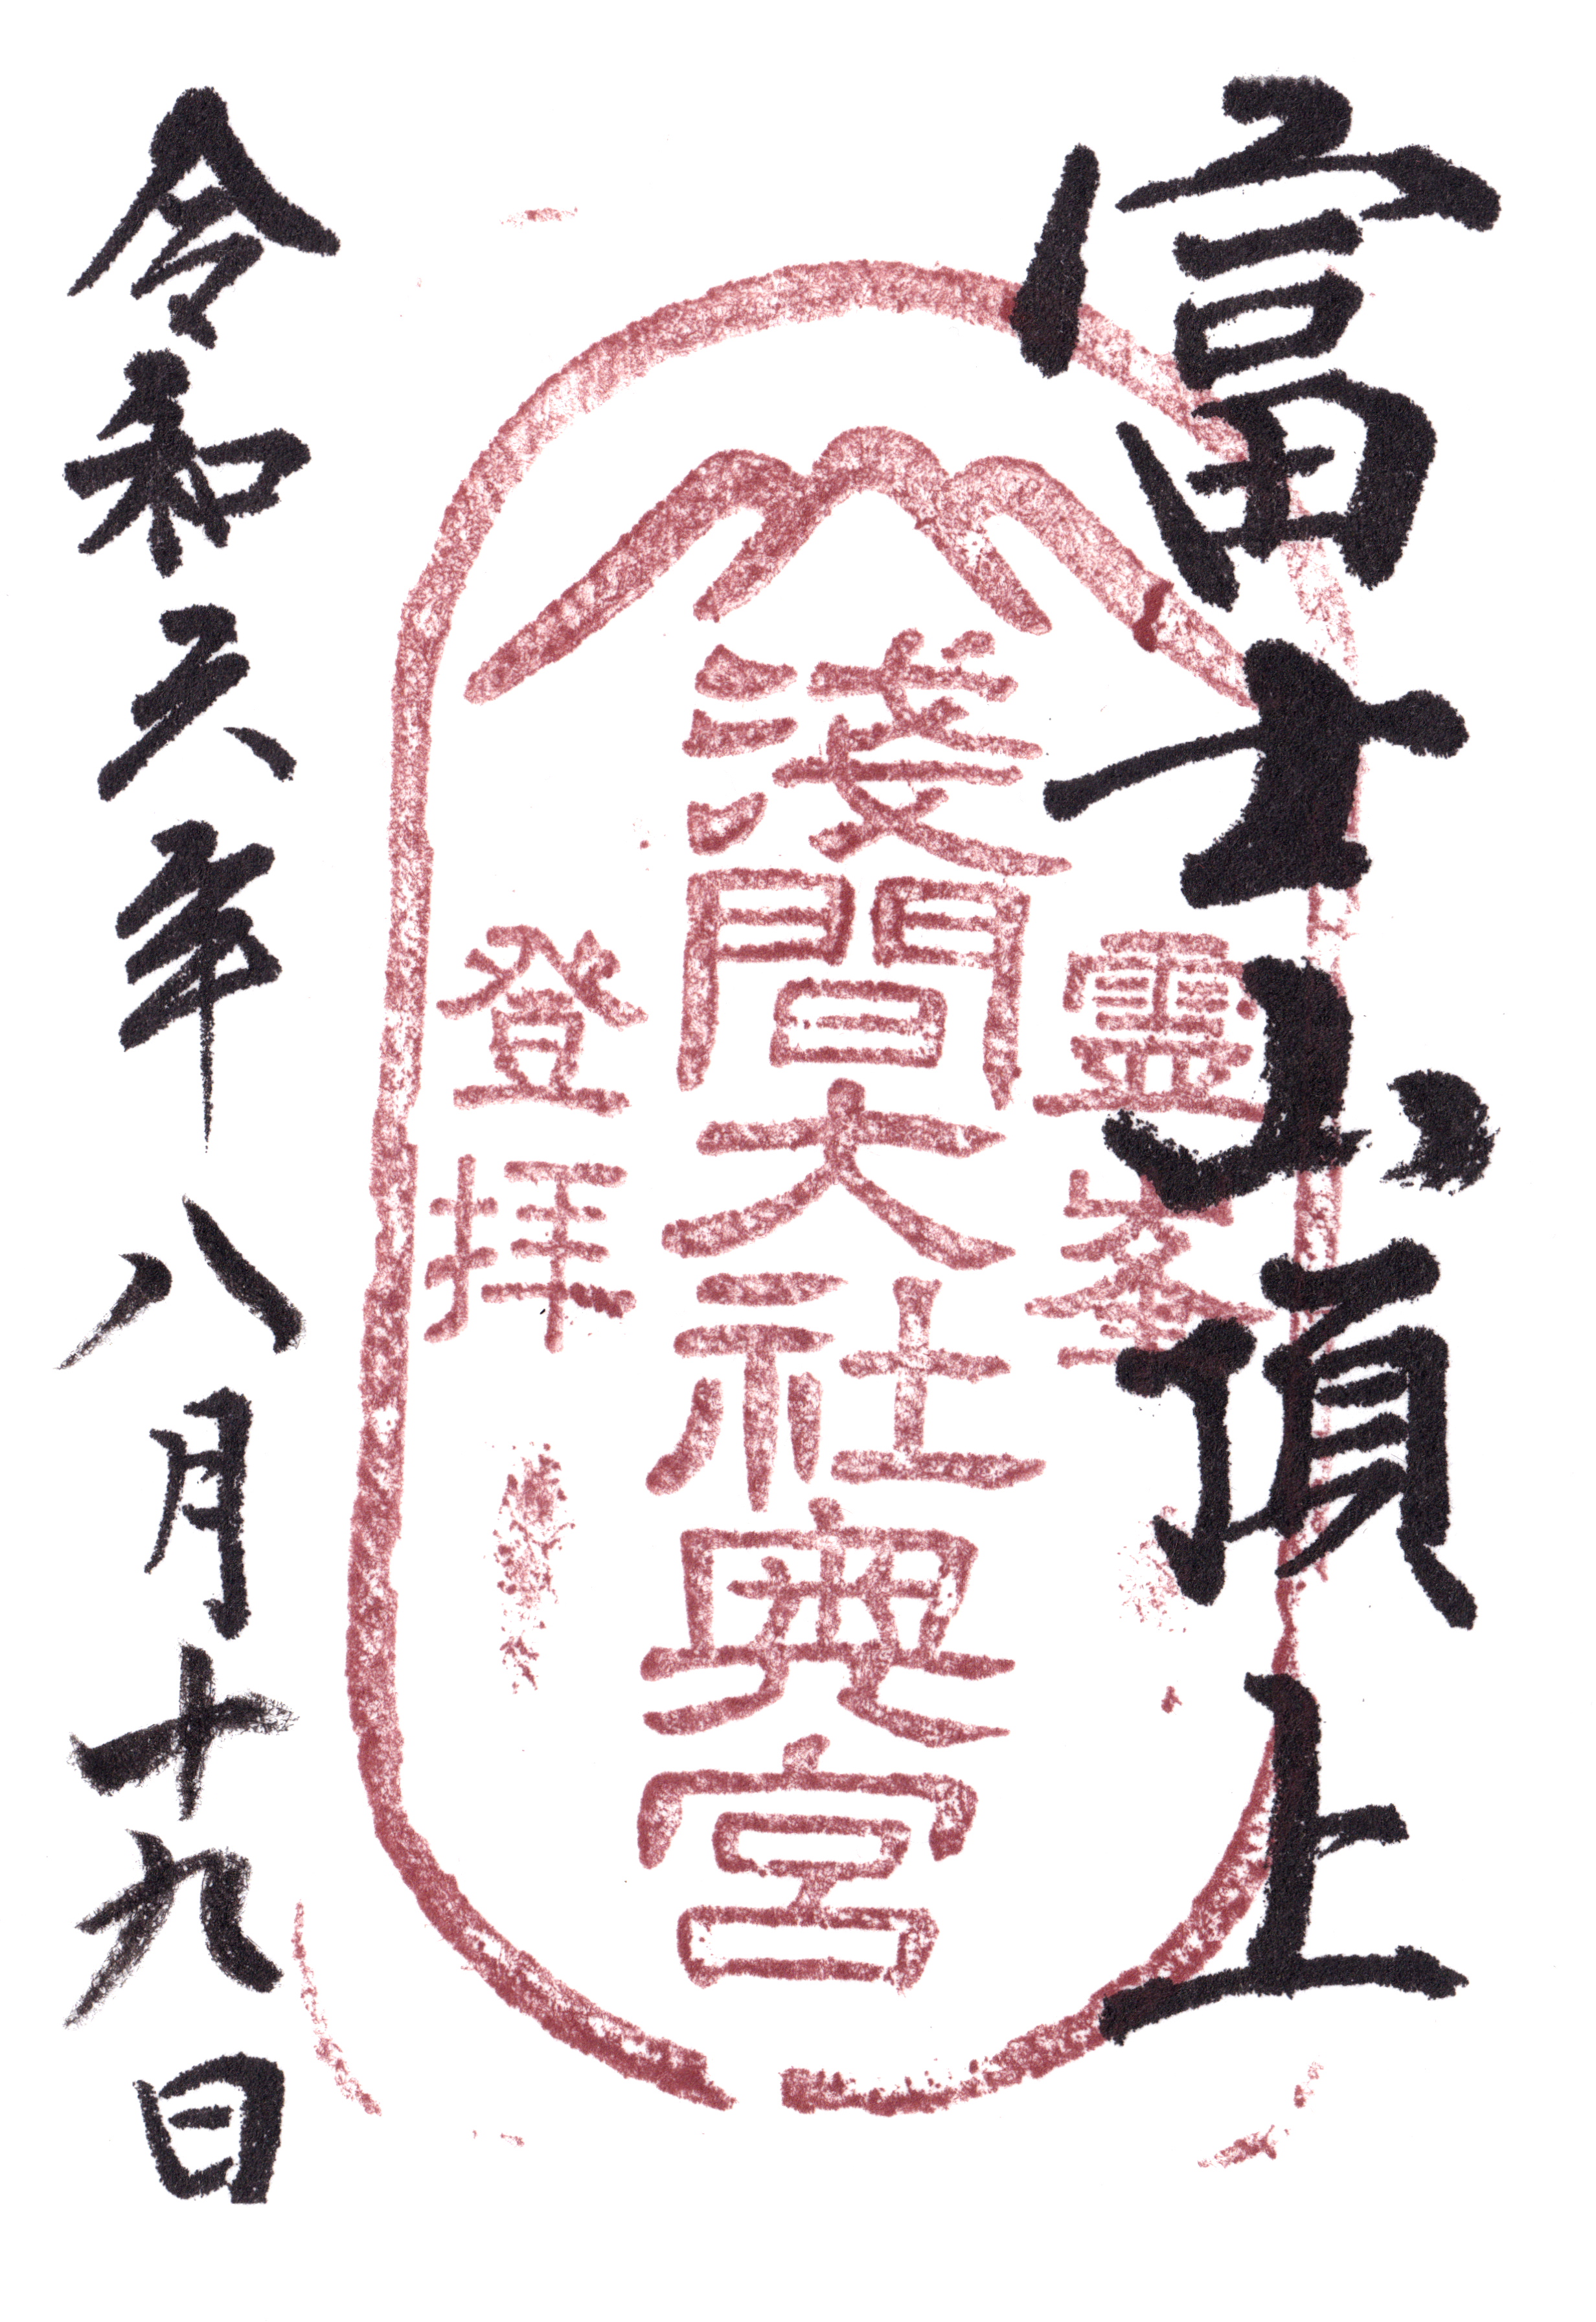 富士山頂上
靈峯
淺間大社奥宮
登拝
令和六年八月十九日